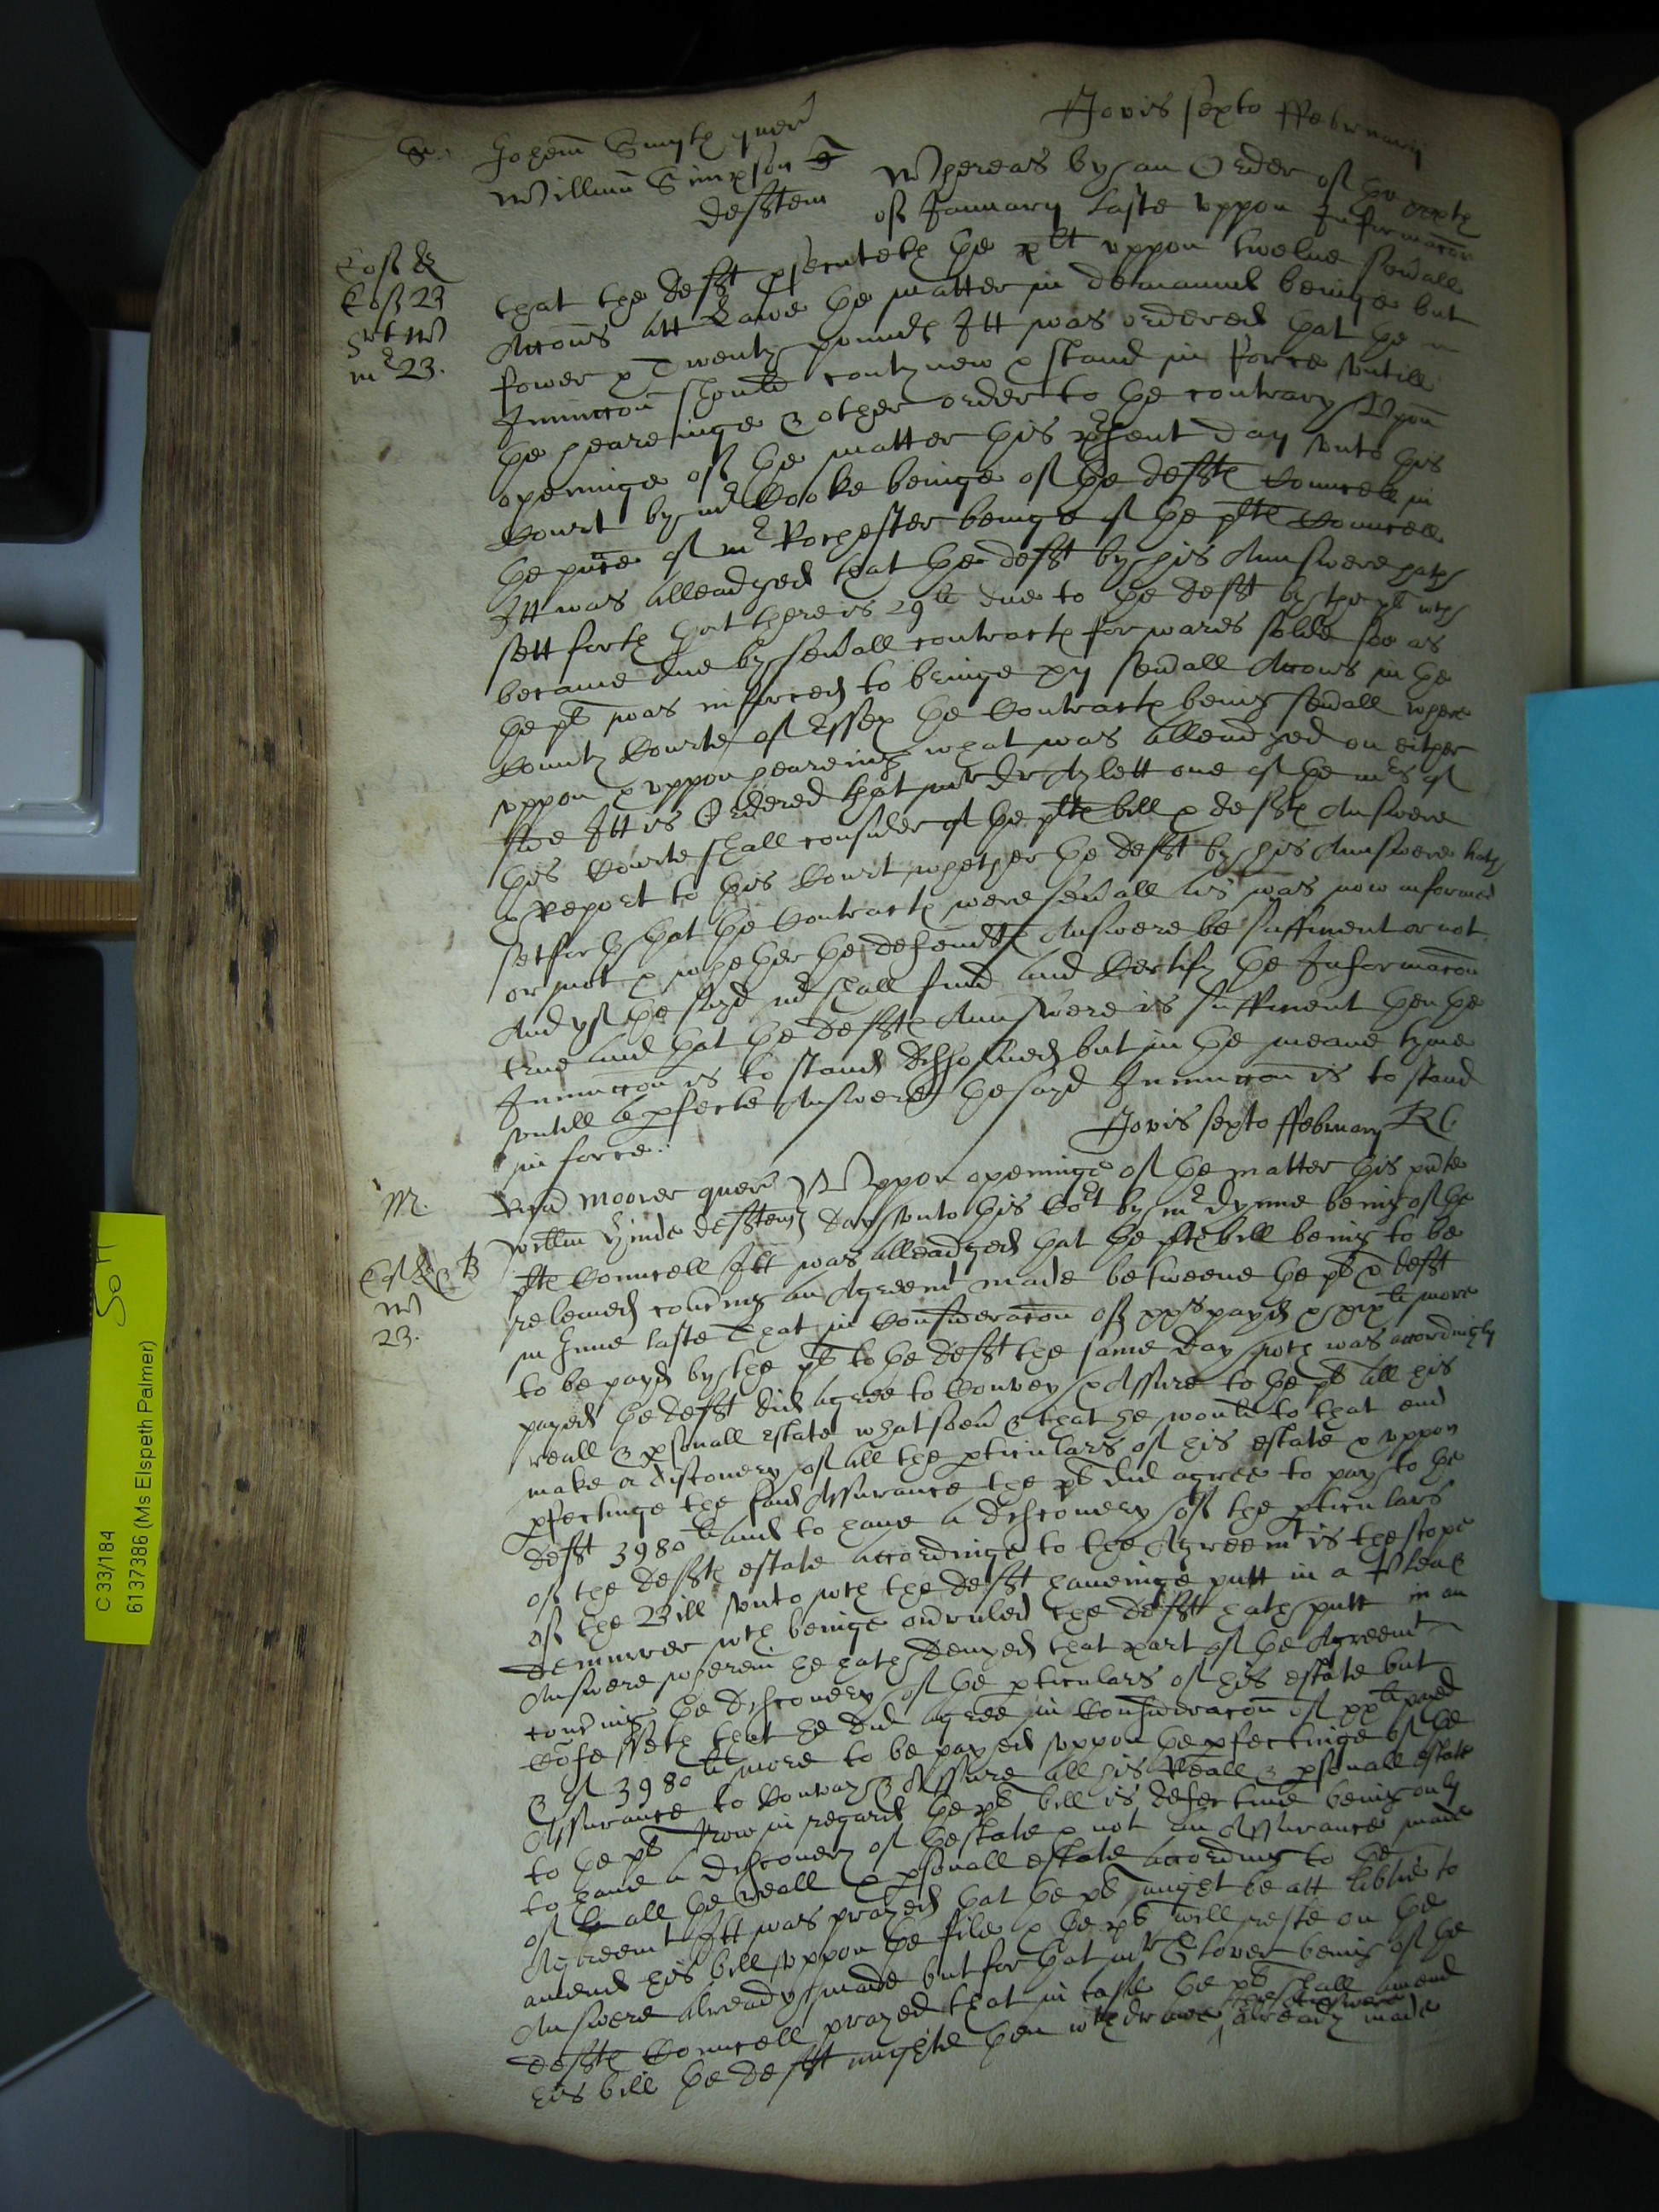 Jovis sexto ffebruarij
Sm. Johem Smyth quer
Willmn Simpson
defftem
Whereas by an Order of the
of January laste uppon Informacon
that the defft psecuteth the plt uppon twelve sevall
Accons att Lawe the matter in demaund beinge but
fower & Twenty pounds Itt was ordered that the
Iniunccon should contynew & stand in force untill
the heareinge & other order to the contrary Upon
openinge of the matter this psent day unto this
Court by mr Cooke beinge of the deffts Councell in
the pnce of mr Rochester beinge of the plts Councell
Itt was alleadged that the defft by his Aunswere hath
sett forth that there is 29li due to the defft by the plt wch
became due by sevall contracts for wares solde soe as
the plt was inforced to bringe xij sevall Accons in the
County Courte of Essex the Contracts being sevall where
uppon & uppon heareing what was alleadged on either
side Itt is Ordered that mr Dr Aylett one of the mrs of
this Courte shall consider of the plts bill & deffts Answere
& Report to this Court whether the defft by his Aunswere hath
setforth that the Contracts were sevall as was now informed
or not & whether the defendts Answere be sufficient or not
And yf the sayd mr shall find and Certify the Informacon
true and that the deffts Aunswere is sufficient then the
Iniunccon is to stand dissolved but in the meane tyme
untill a pfecte Answere the sayd Iniunccon is to stand
in force.
Cos &
Cos 23
m 23.
Jovis sexto ffebruary RC
M.
Moore quer
Willm Hinde defftem
Uppon openinge of the matter this pnte
day unto this Cort by mr dynne being of the
plts Councell Itt was alleadged that the plts bill being to be
releived concning an Agreemt made betweene the plt & defft
in June laste That in Consideracon of xxs payd & xixli more
to be payd by the plt to the defft the same day wch was accordingly
payed the defft did agree to Convey & Assure to the plt all his
reall & psonall estate whatsoevr & that he would to that end
make a discovery of all the pticulars of his estate & uppon
pfectinge the said Assurance the plt did agree to pay to the
defft 3980li and to have a discovery of the pticulars
of the deffts estate accordinge to the Agreemt is the scope
of the Bill unto wch the defft haveinge putt in a Plea &
demurrer wch beinge ovruled the defft hath putt in an
Answere wherein he hath denyed that part of the Agreemt
concning the discovery of the pticulars of his estate but
Confesseth that he did agree in Consideracon of xxli payed
& of 3980li more to be payed uppon the pfectinge of the
Assurance to Convay & Assure all his Reall & psonall estate
to the plt Now in regard the plt bill is defective being only
to have a discovery of thestate & not an Assurance made
of all the reall & psonall estate according to the
Agreemt Itt was prayed that the plt might be att libtie to
amend his bill uppon the file & the plt will reste on the
Answere already made but for that mr Glover being of the
deffts Councell prayed that in case the plt shall amend
his bill the defft mighte then wthdrawe theanswere already made
Cos & B
23.
C 33/184
6137386 (Ms Elspeth Palmer)
SO 11